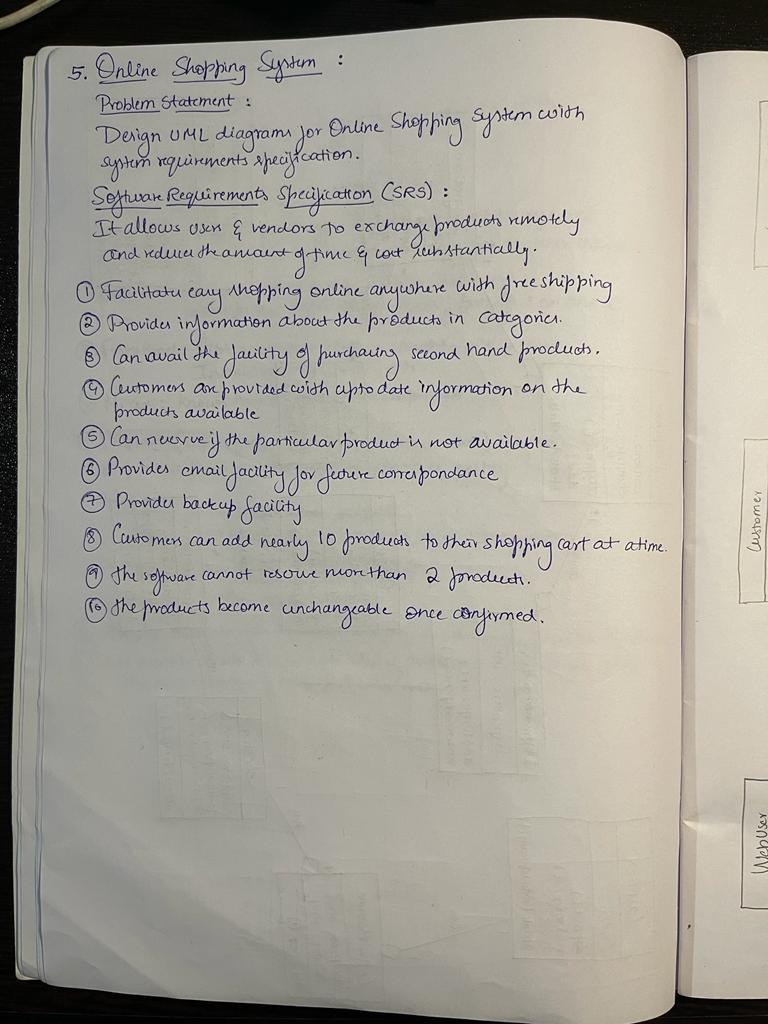 5. Online Shopping System :
Problem Statement :
Design UML diagrams for Online Shopping System with
system requirements specification.
Software Requirements Specification (SRS) :
It allows users & vendors to exchange products remotely
and reduces the amount of time & cost substantially.
① Facilitates easy shopping online anywhere with free shipping
② Provides information about the products in categories.
③ Can avail the facility of purchasing second hand products.
④ Customers are provided with upto date information on the
products available
⑤ Can reserve if the particular product is not available.
⑥ Provides email facility for future correspondance
⑦ Provides backup facility
⑧ Customers can add nearly 10 products to their shopping cart at a time.
⑨ the software cannot reserve more than 2 products.
⑩ the products become unchangeable once confirmed.
Customer
Web User